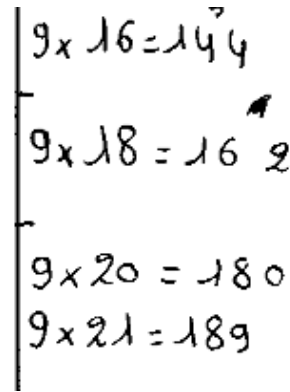 9 x 16 = 144
9 x 18 = 162
9 x 20 = 180
9 x 21 = 189